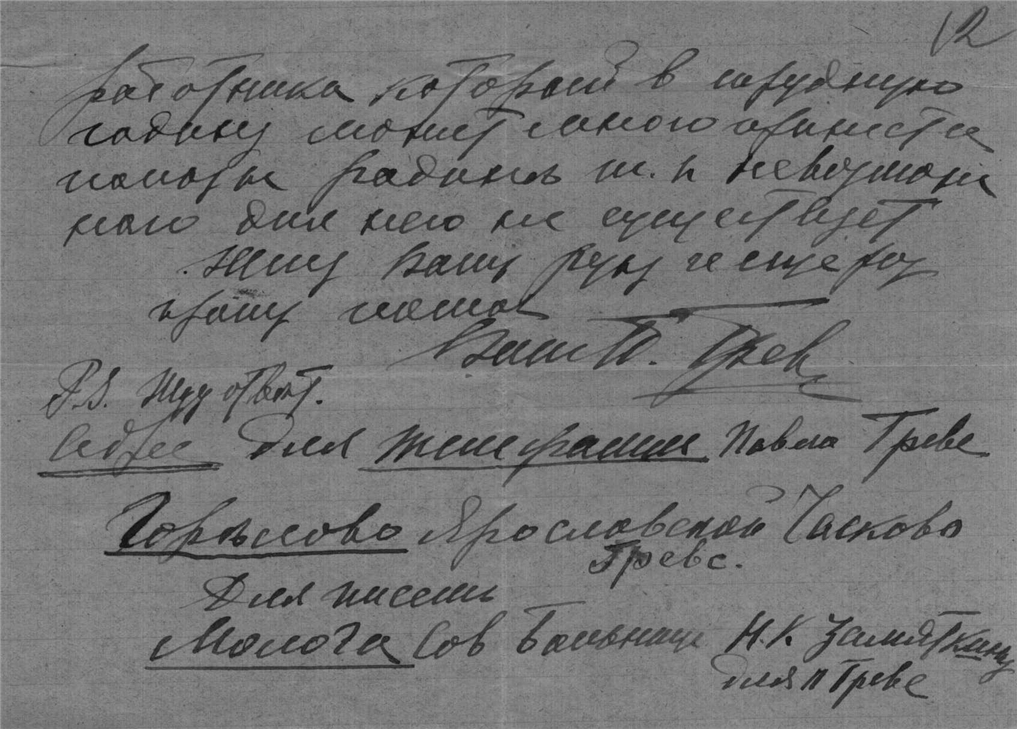 12
работника который в трудную
годину может много принести
пользы родине т. к невозмож
ного для него не существует
Жму Вашу руку и еще раз
прошу
Ваш П. Греве
P.S. Жду ответ.
Адрес для телеграмм Павла Греве
Горелово Ярославской Часково
Греве.
Для писем
Молога Сов Больница Н.К. Замяткину
для П Греве